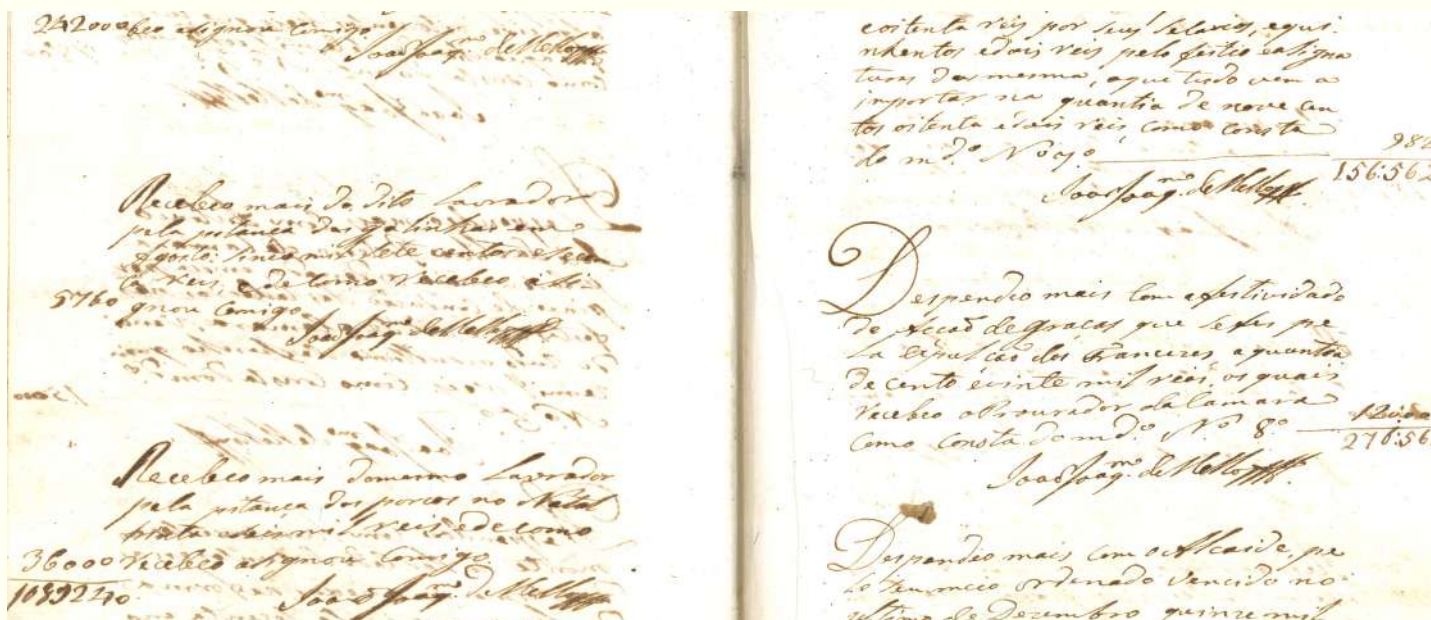 24200 beo asignou Comigo
Joaõ Joaq.m de Mello
Recebeo mais do dito Lavrador
pela pitança das galinhas em
Agosto: sinco mil sete centos e secen
ta reis, e de como recebeo asi-
5760 gnou Comigo
Joaõ Joaq.m de Mello
Recebeo mais do mesmo Lavrador
pela pitança dos porcos no Natal
trinta eseis mil reis, e de como
36000 recebeo asignou Comigo
1089240 Joaõ Joaq.m de Mello
eoitenta réis por seus selarios, equi-
nhentos edois reis pelo feitio easigna
turas das mesma, aque tudo vem a
importar na quantia de nove cen
tos oitenta édois reis, Como consta
do m.do N.o 7.o 982
156:562
Joaõ Joaq.m de Mello
Despendio mais Com afestividade
de Accaõ de gracas que sefes pe-
la expulcaõ dos Francezes, aquantia
de cento évinte mil reis, os quais
recebeo oProcurador da Camara
Como Consta do md.o N.o 8.o 120:000
276:56
Joaõ Joaq.m de Mello
Despendio mais Com oAlcaide, pe
lo seu ordenado vencido no
ultimo de Dezembro quinze mil